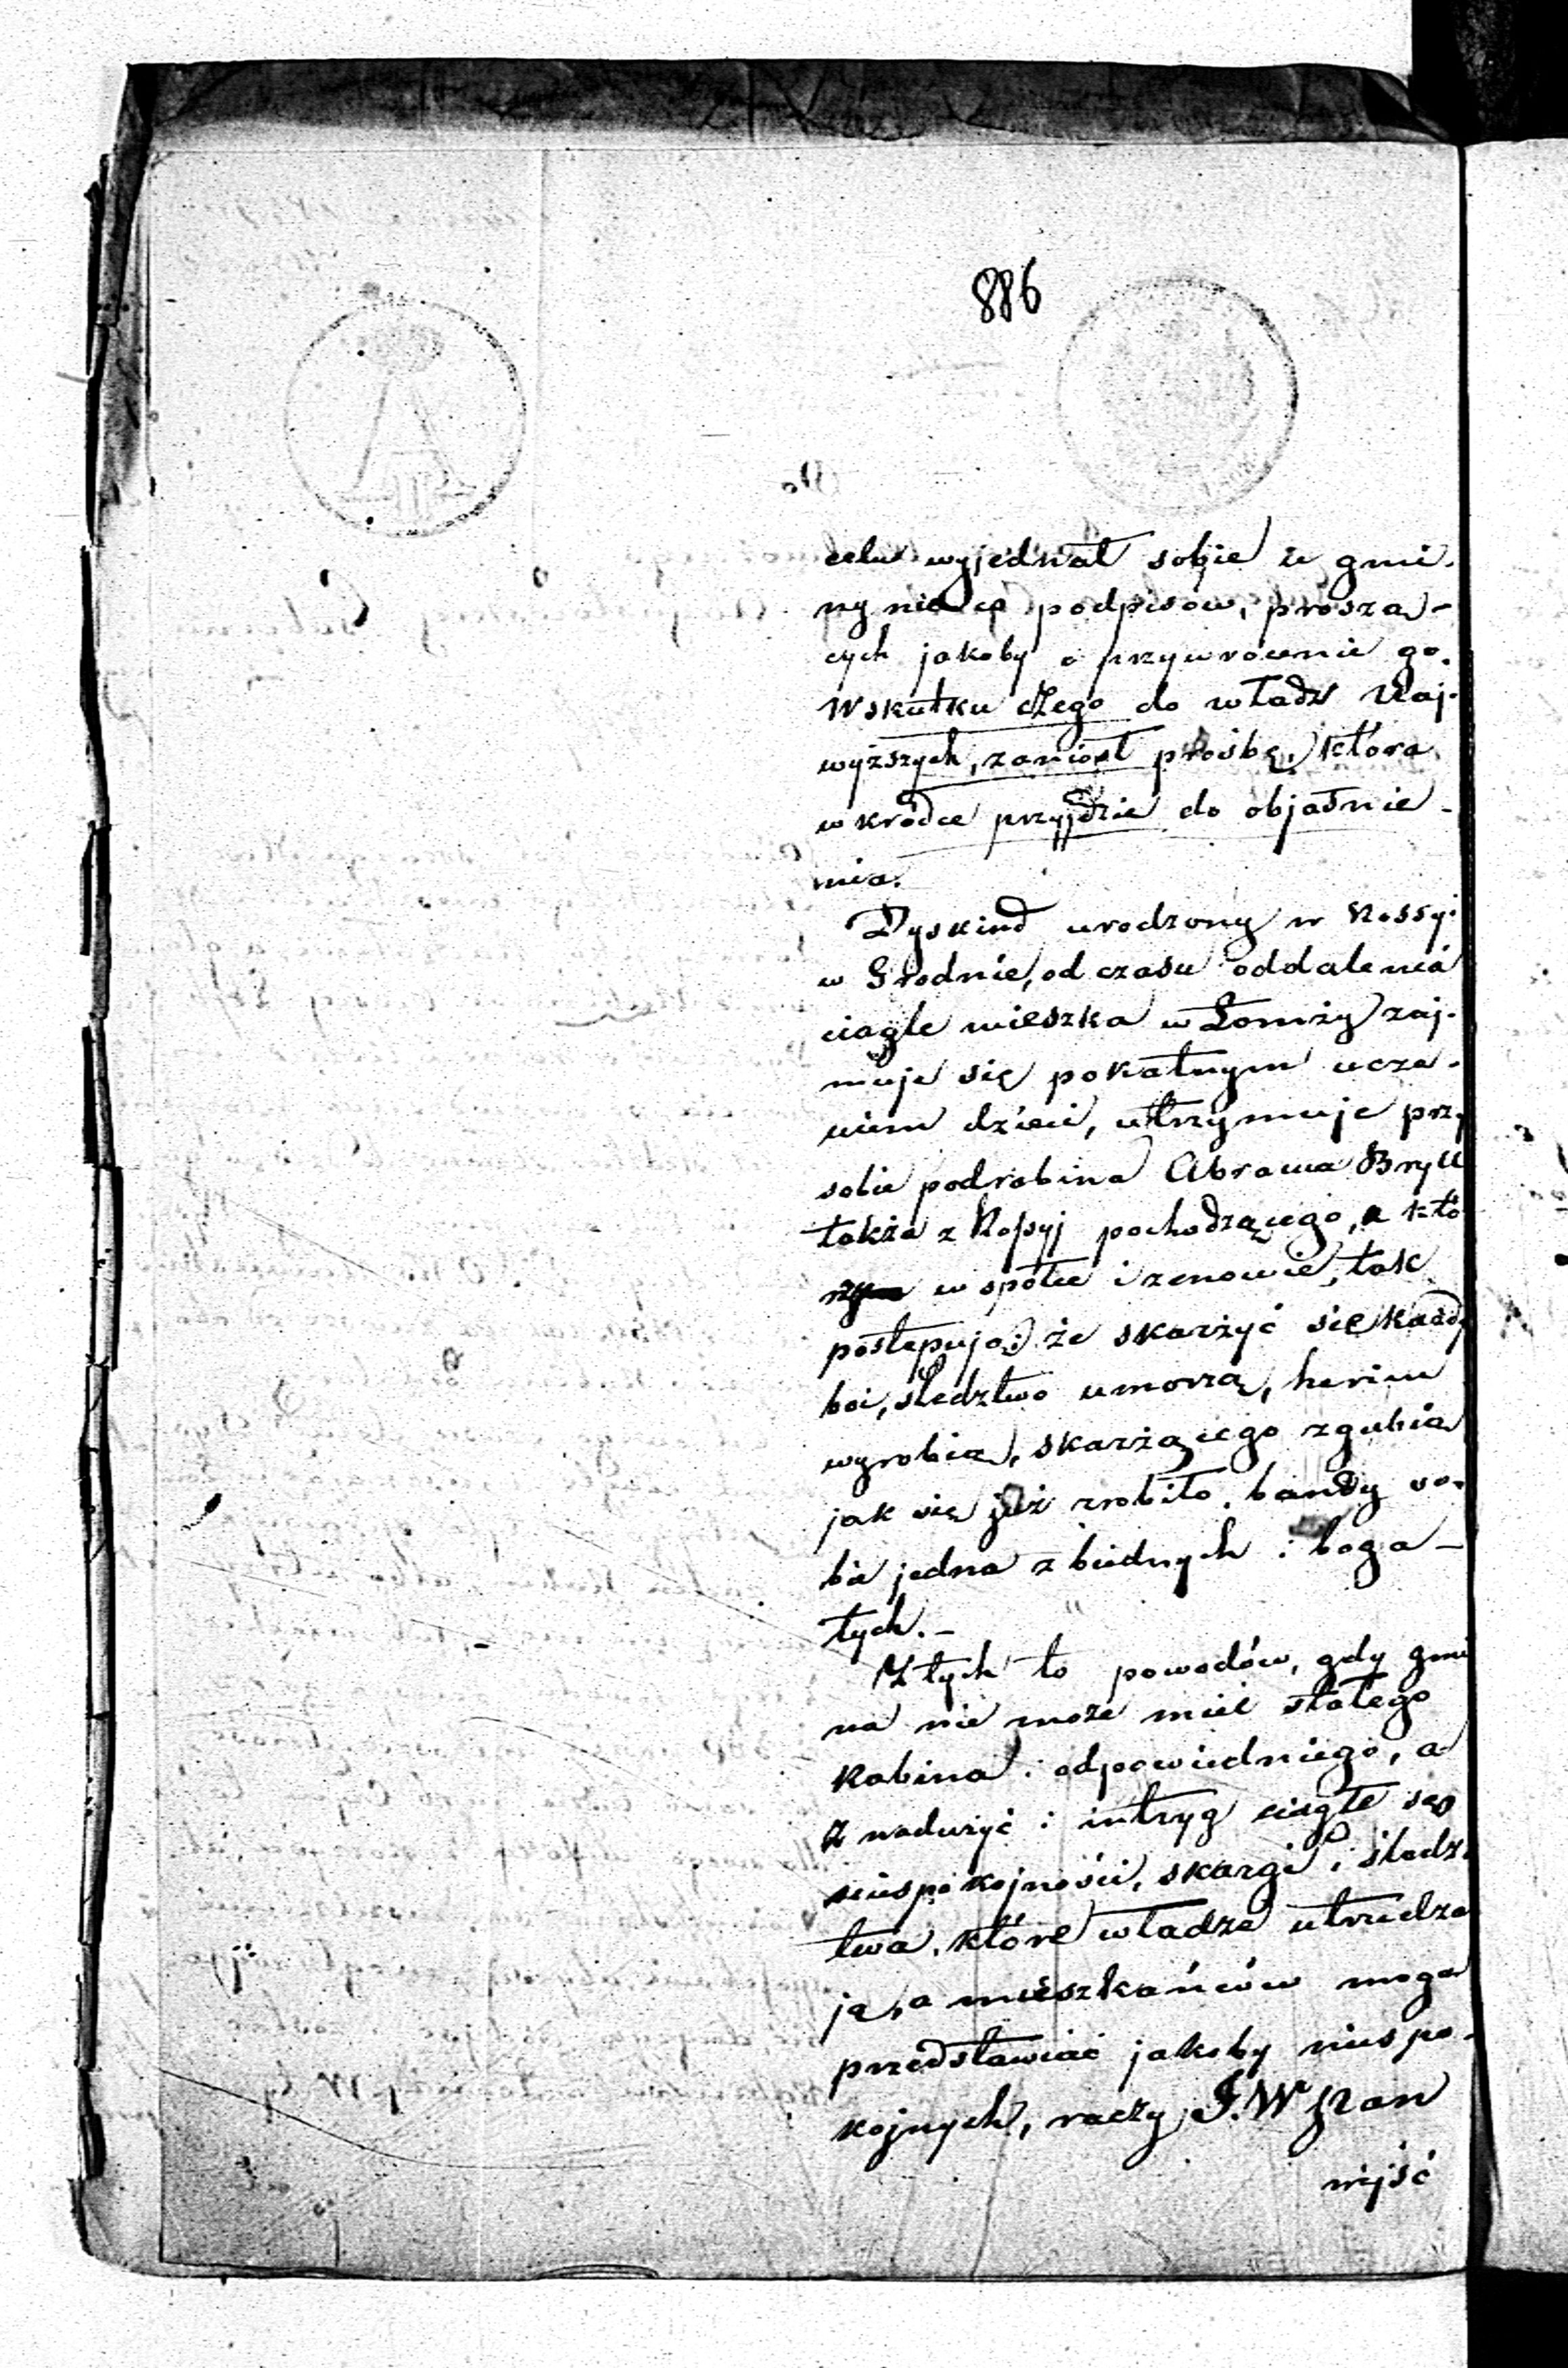 886
celu wyjednał sobie u gmi.
ny nieco podpisów, proszą-
cych jakoby o przywrócenie go.
Wskutku czego do władz Naj-
wyższych, zaniosł prośbę, która
wkródce przyjdzie do objaśnie-
nia.
Dyskind urodzony w Rossyi
w Grodnie, od czasu oddalenia
ciągle mieszka w Łomży zaj-
muje się pokątnym ucze-
niem dzieci, utrzymuje przy
sobie podrabina Abrama Bryll
także z Rossyj pochodzącego, a któ
rzy w spółce i zmowie, tak
postępują: że skarżyć się każdy
boi, śledztwo umorzą, herim
wyrobią, skarżącego zgubią
jak się już zrobiło. bandy so-
bie jedna z biednych i boga-
tych.-
Z tych to powodów, gdy gmi
na nie może mieć stałego
Rabina i odpowiedniego, a
z nadużyć i intryg ciągłe są
niespokojności, skargi i śledz-
twa, które władze utrudza
ją, a mieszkańców mogą
przedstawiać jakoby niespo-
kojnych, raczy J.W Pan
wejść